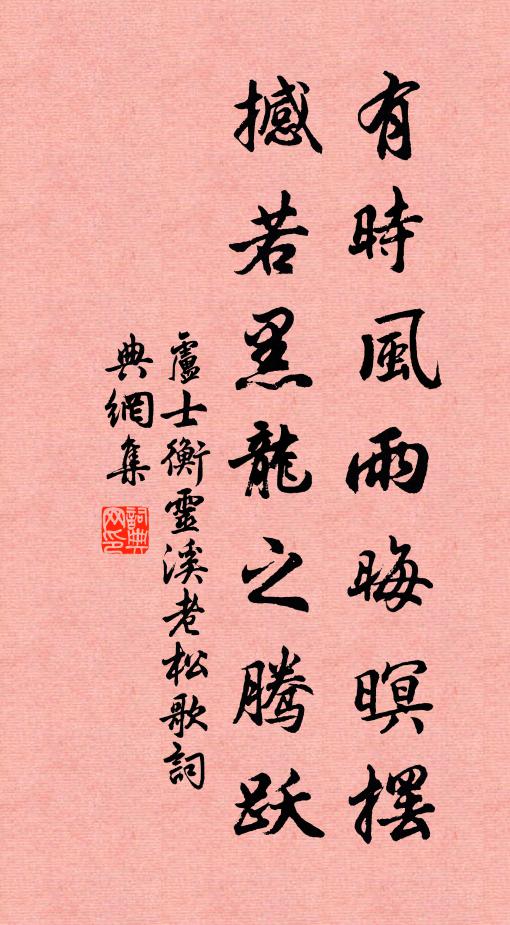 有時風雨晦暝擺
撼若黑龍之騰跃
盧士衡靈溪老松歌詞
典網集
詞典網印